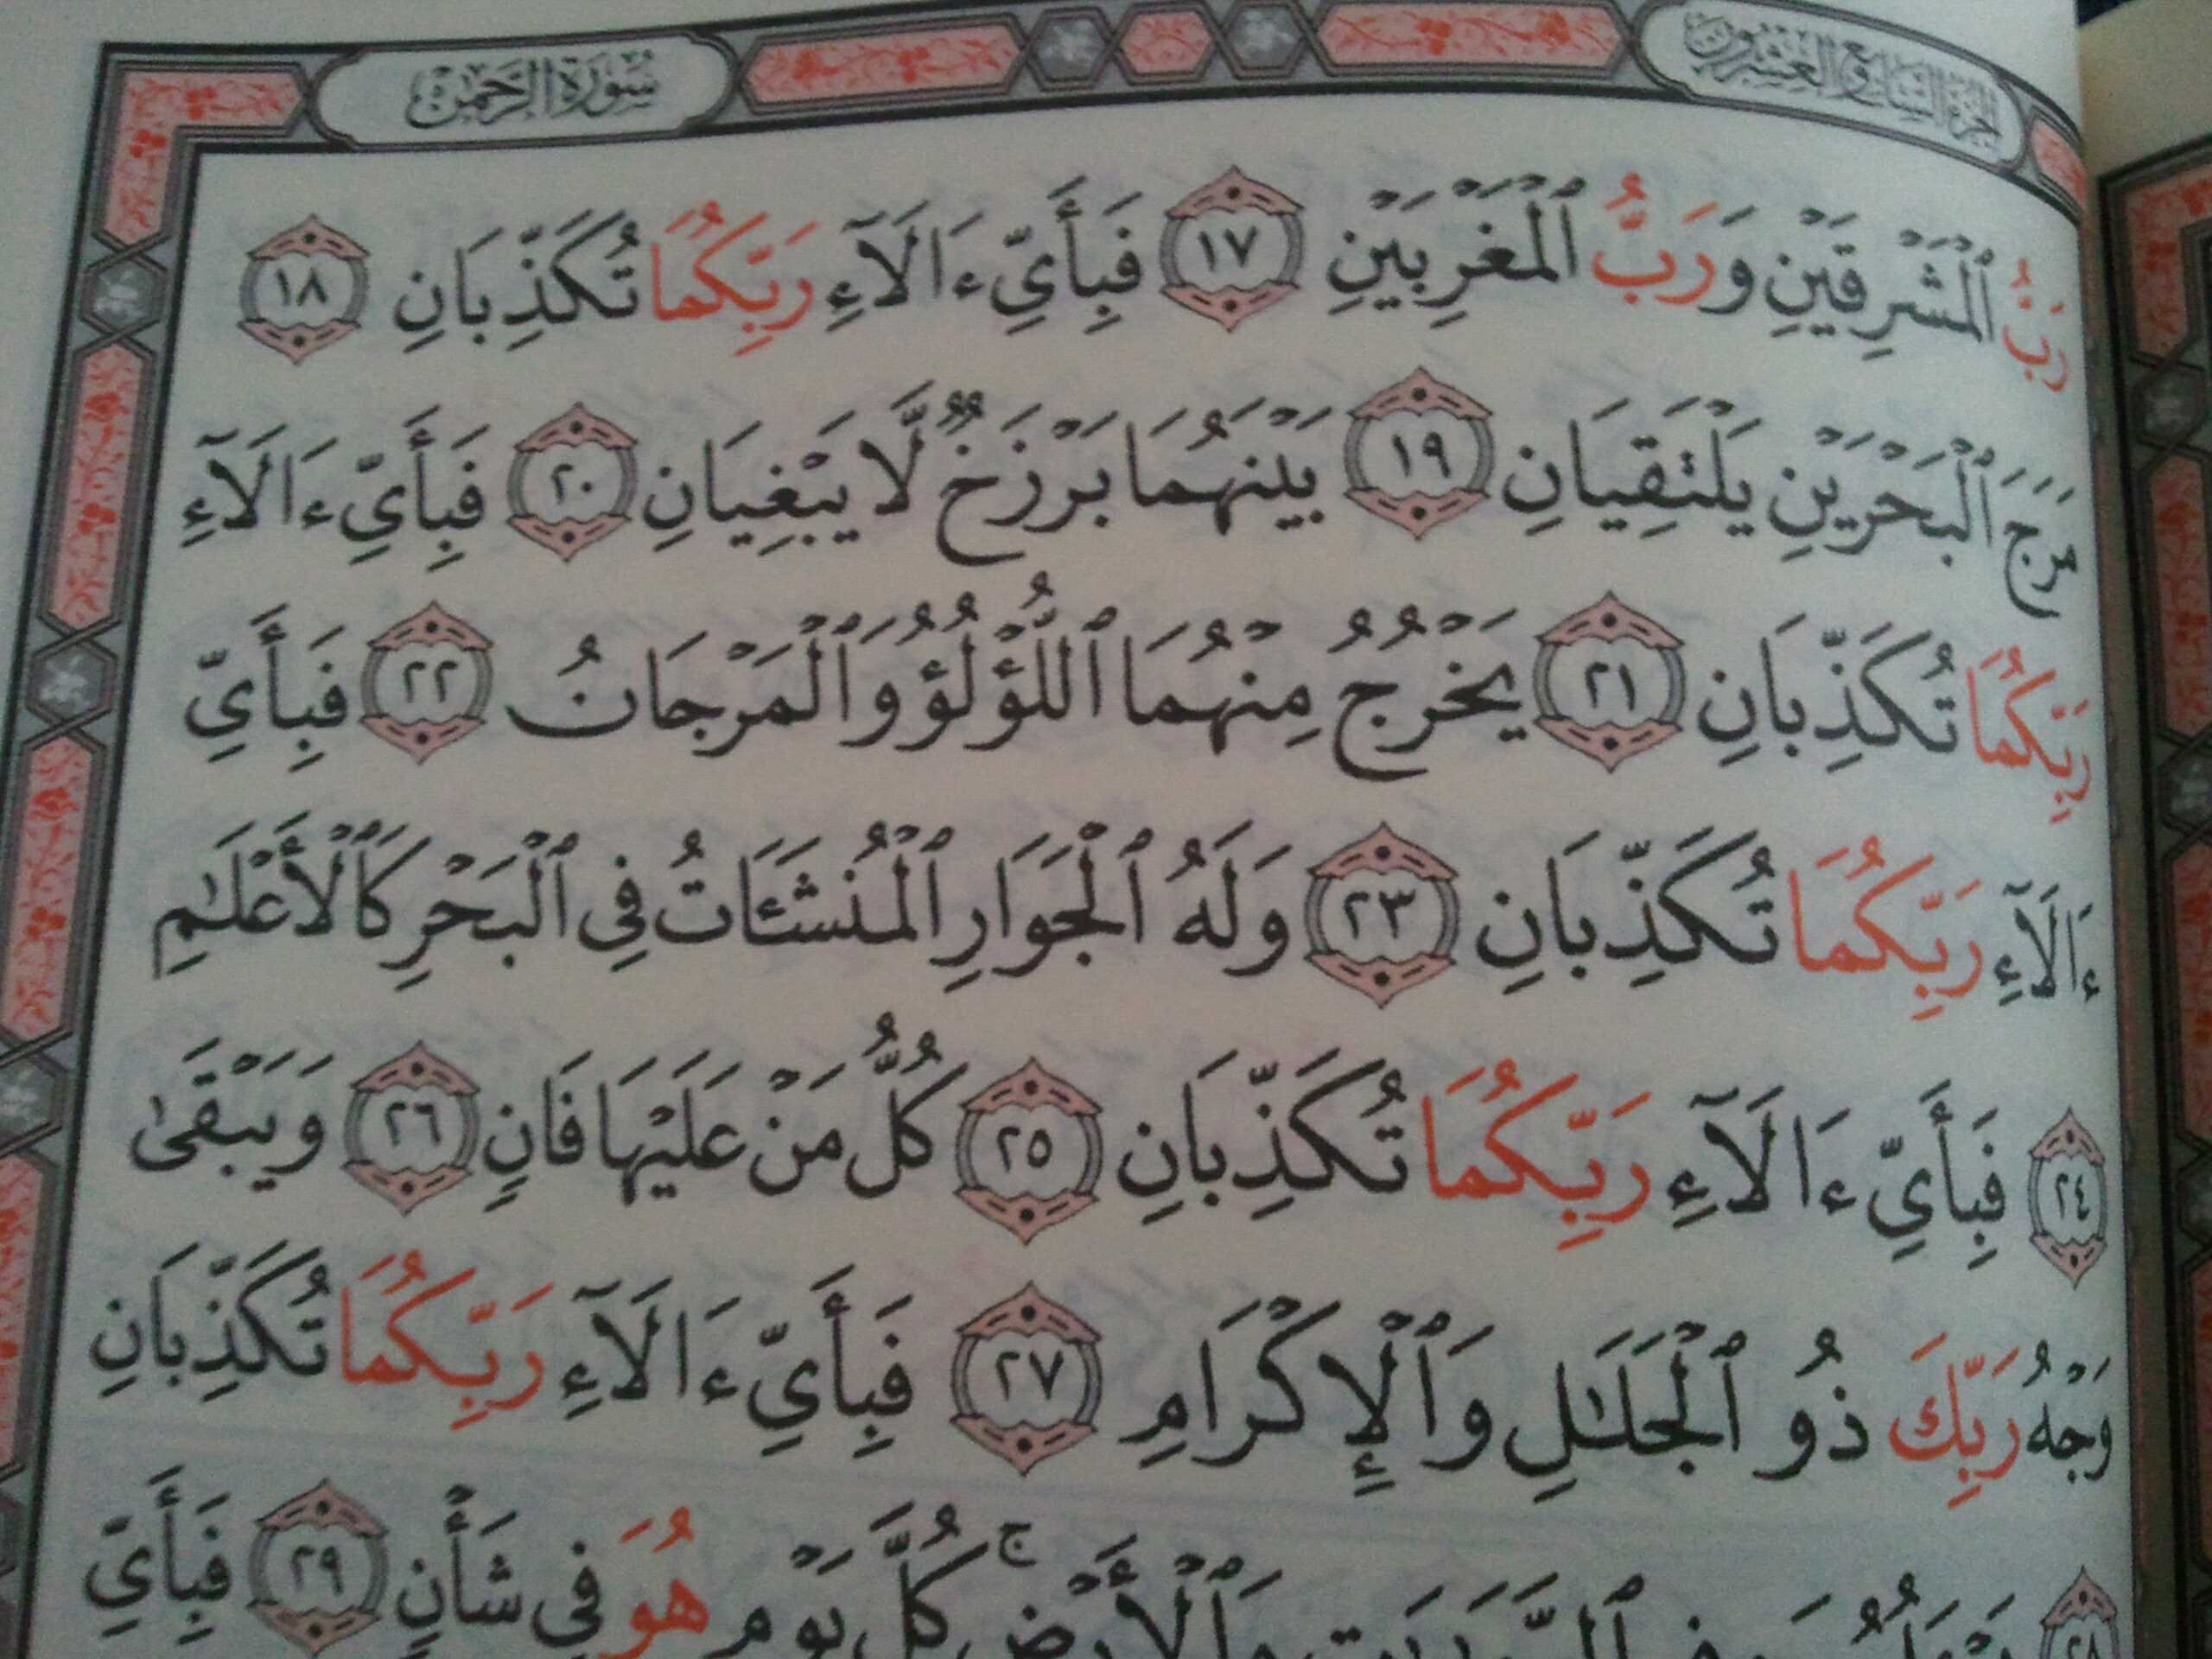 الجزء السابع والعشرون
سورة الرحمن
رَبُّ ٱلْمَشْرِقَيْنِ وَرَبُّ ٱلْمَغْرِبَيْنِ ١٧ فَبِأَىِّ ءَالَآءِ رَبِّكُمَا تُكَذِّبَانِ ١٨
مَرَجَ ٱلْبَحْرَيْنِ يَلْتَقِيَانِ ١٩ بَيْنَهُمَا بَرْزَخٌ لَّا يَبْغِيَانِ ٢٠ فَبِأَىِّ ءَالَآءِ
رَبِّكُمَا تُكَذِّبَانِ ٢١ يَخْرُجُ مِنْهُمَا ٱللُّؤْلُؤُ وَٱلْمَرْجَانُ ٢٢ فَبِأَىِّ
ءَالَآءِ رَبِّكُمَا تُكَذِّبَانِ ٢٣ وَلَهُ ٱلْجَوَارِ ٱلْمُنشَـَٔاتُ فِى ٱلْبَحْرِ كَٱلْأَعْلَـٰمِ
٢٤ فَبِأَىِّ ءَالَآءِ رَبِّكُمَا تُكَذِّبَانِ ٢٥ كُلُّ مَنْ عَلَيْهَا فَانٍ ٢٦ وَيَبْقَىٰ
وَجْهُ رَبِّكَ ذُو ٱلْجَلَـٰلِ وَٱلْإِكْرَامِ ٢٧ فَبِأَىِّ ءَالَآءِ رَبِّكُمَا تُكَذِّبَانِ
٢٨ فِى وَٱلْأَرْضِ ۚ كُلَّ يَوْمٍ هُوَ فِى شَأْنٍ ٢٩ فَبِأَىِّ